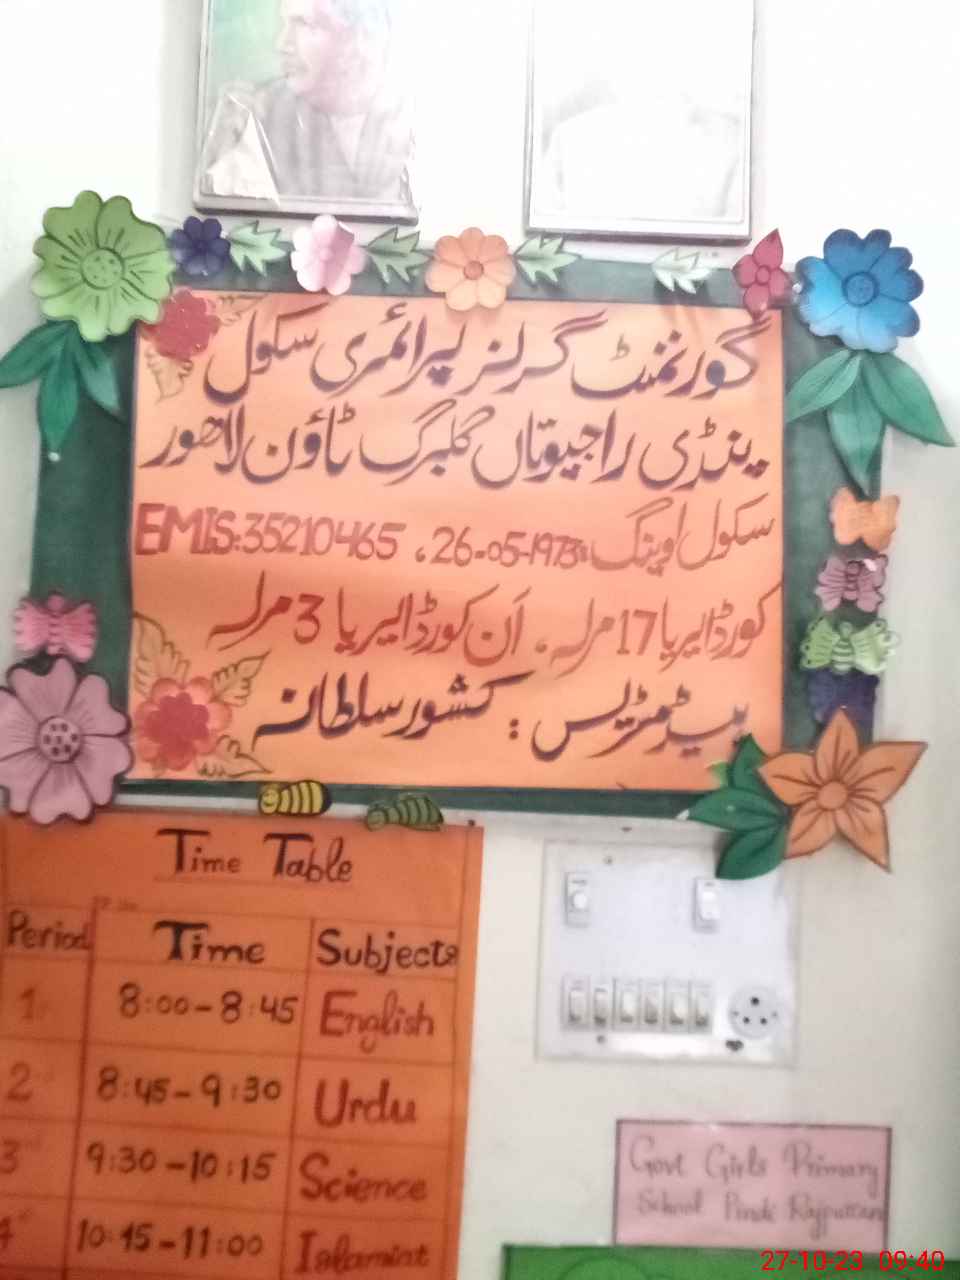 گورنمنٹ گرلز پرائمری سکول
پنڈی راجپوتاں گلبرگ ٹاؤن لاھور
سکول اوپننگ: 26-05-1973، EMIS:35210465
کورڈ ایریا 17 مرلہ، اَن کورڈ ایریا 3 مرلہ
ہیڈمسٹریس: کشور سلطانہ
Time Table
Period Time Subjects
1 8:00-8:45 English
2 8:45-9:30 Urdu
3 9:30-10:15 Science
4 10:15-11:00 Islamiat
Govt Girls Primary
School Pindi Rajputtan
27-10-23 09:40